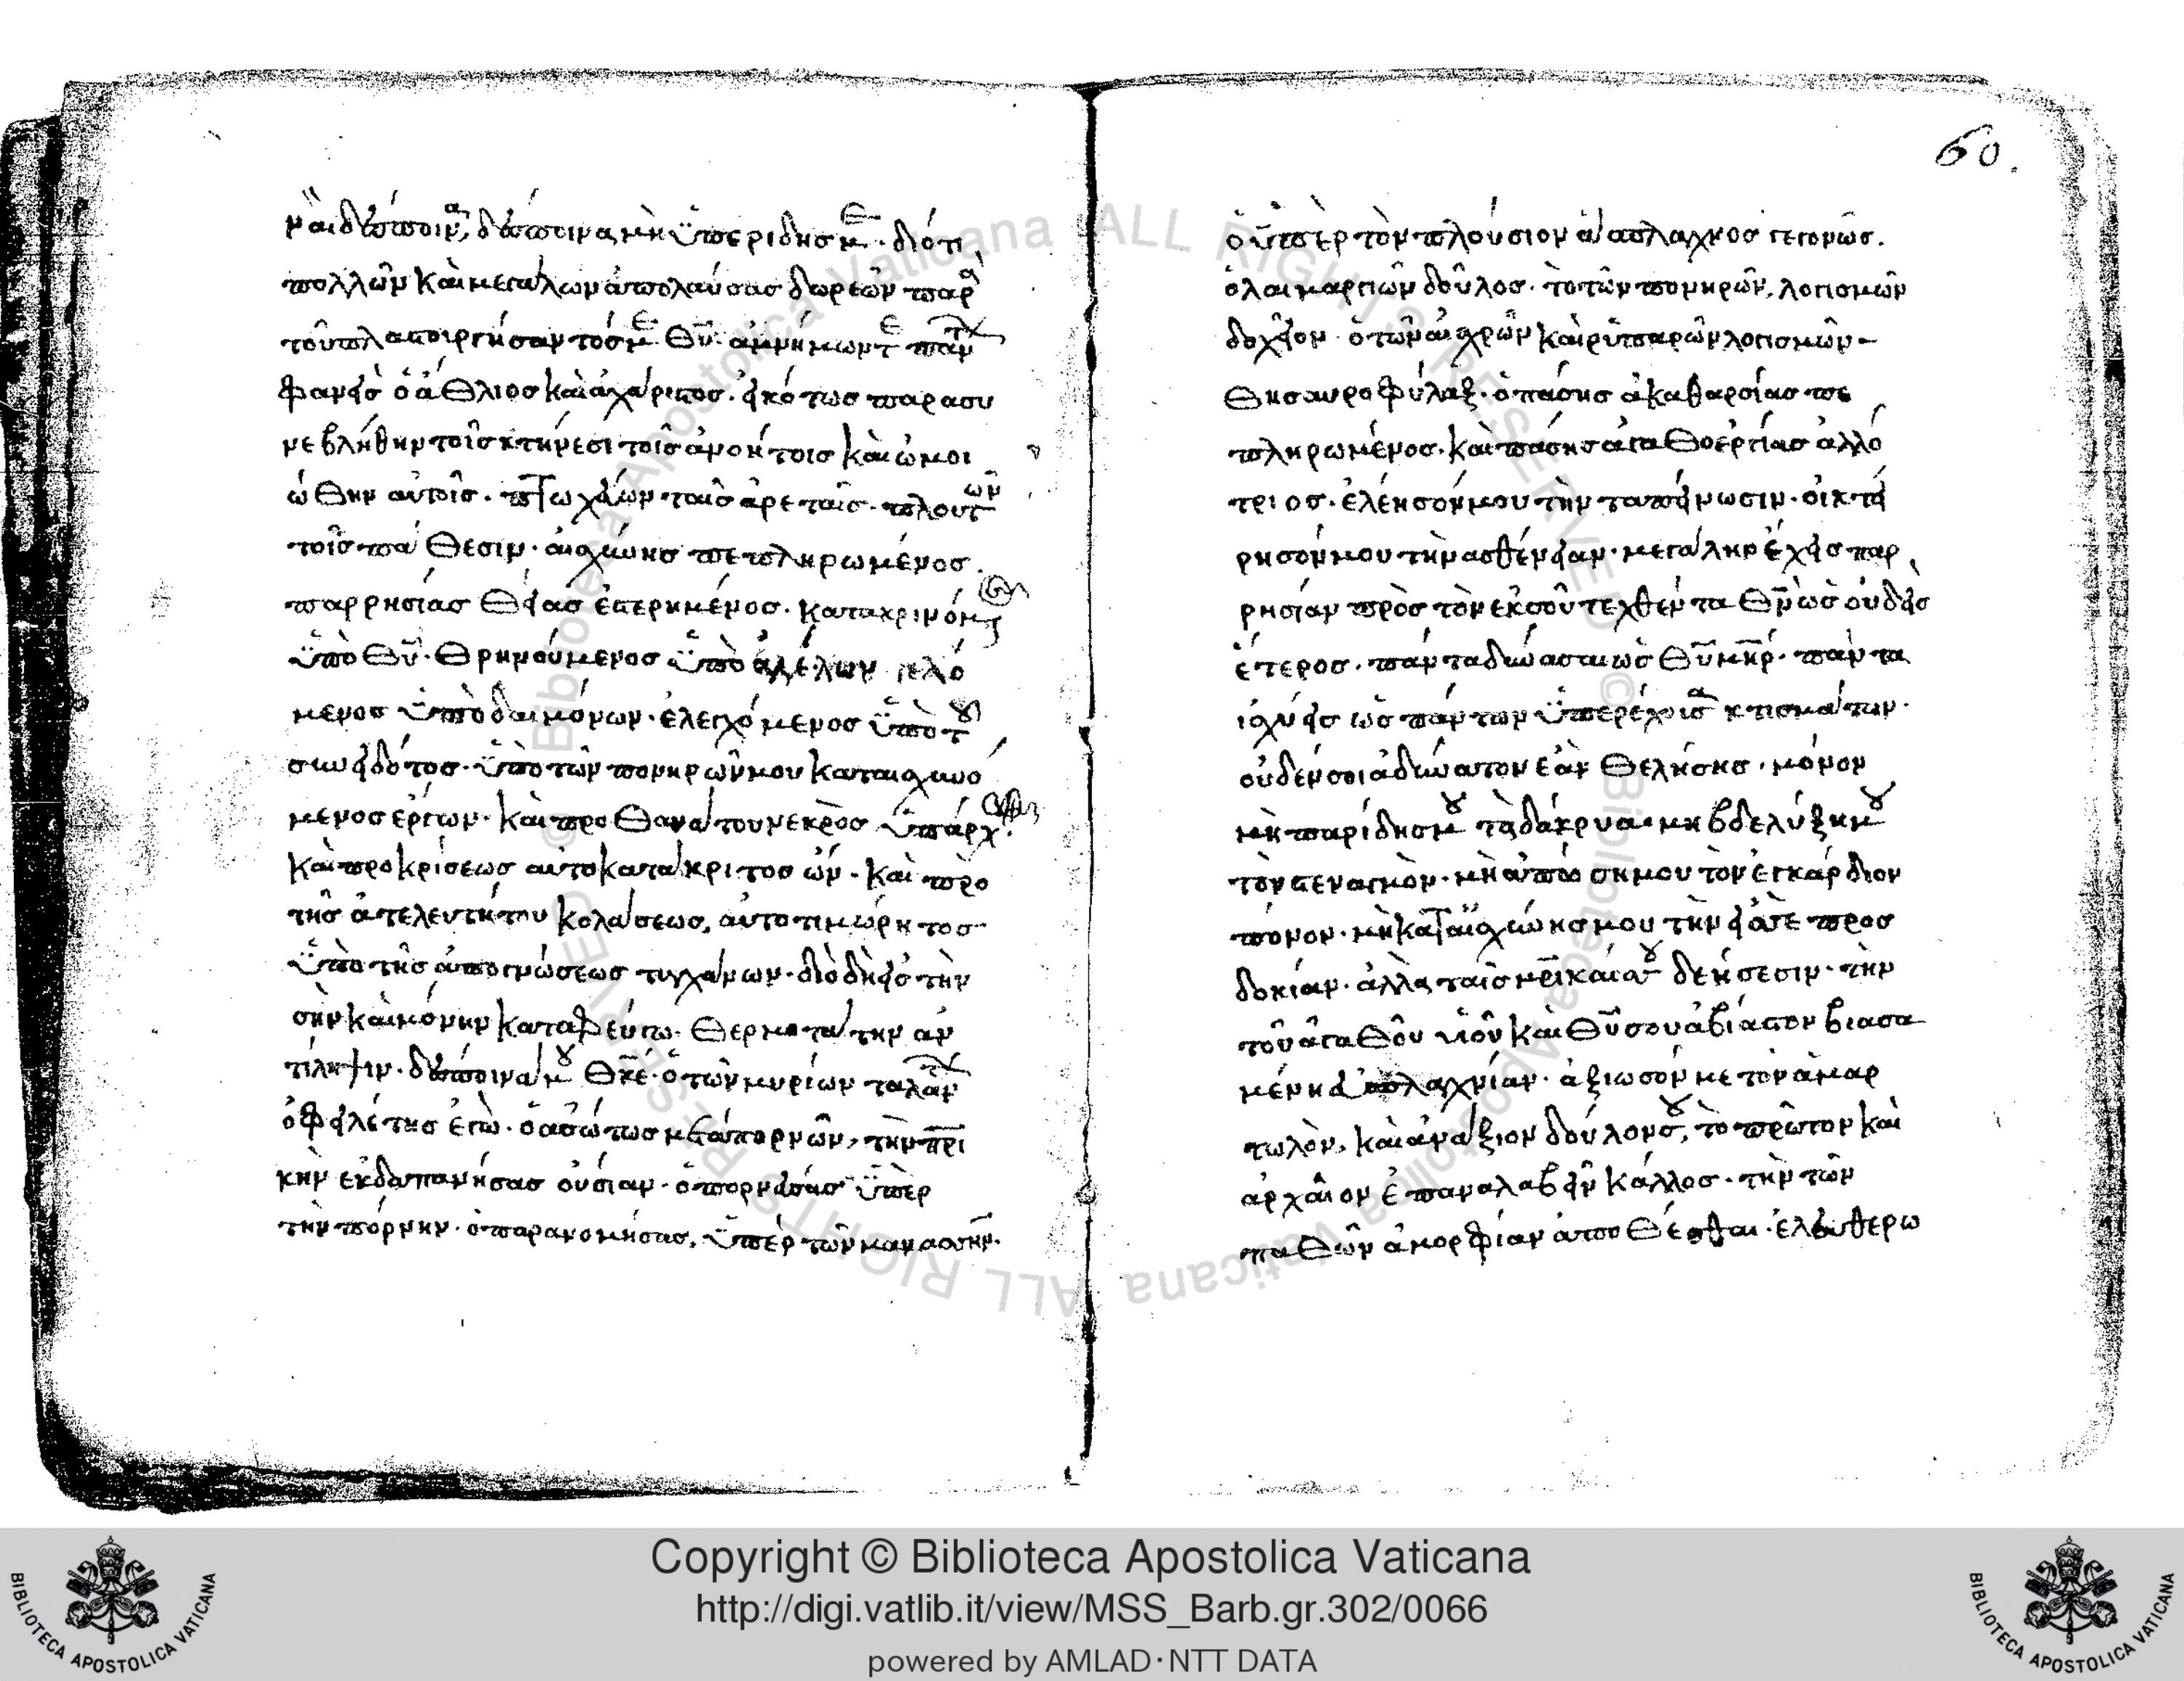 ναὶ δέσποινα, δέσποινα μὴ ὑπερίδῃς με· διότι
πολλῶν καὶ μεγάλων ἀπολαύσας δωρεῶν παρὰ
τοῦ πλαστουργήσαντός με Θῦ· ἀμνήμων τε πάντων
φανεὶς ὁ ἄθλιος καὶ ἀχάριστος· εἰκότως παρασυ
νεβλήθην τοῖς κτήνεσι τοῖς ἀνοήτοις καὶ ὡμοι
ώθην αὐτοῖς· πτωχεύων ταῖς ἀρεταῖς· πλουτῶν
τοῖς πάθεσιν· αἰσχύνης πεπληρωμένος
παρρησίας θείας ἐστερημένος· κατακρινόμενος
ὑπὸ Θῦ· θρηνούμενος ὑπὸ ἀγγέλων γελώ
μενος ὑπὸ δαιμόνων· ἐλεγχόμενος ὑπὸ τοῦ
συνειδότος· ὑπὸ τῶν πονηρῶν μου καταισχυνό
μενος ἔργων· καὶ προ θανάτου νεκρὸς ὑπάρχων
καὶ προ κρίσεως αὐτοκατάκριτος ὢν· καὶ πρὸ
τῆς ἀτελευτήτου κολάσεως, αὐτοτιμώρητος
ὑπὸ τῆς ἀπογνώσεως τυγχάνων· διὸ δὴ εἰς τὴν
σὴν καὶ μόνην καταφεύγω θερμοτάτην ἀν
τίληψιν· δέσποινά μου Θκε· ὁ τῶν μυρίων ταλάντων
ὀφειλέτης ἐγώ· ὁ ἀσώτως μετὰ πορνῶν, τὴν πρι
κὴν ἐκδαπανήσας οὐσίαν· ὁ πορνεύσας ὑπὲρ
τὴν πόρνην· ὁ παρανομήσας, ὑπὲρ τῶν μανασσῆν·
60.
ὁ ὑπὲρ τὸν πλούσιον ἄσπλαχνος γεγονώς.
ὁ λαιμαργιῶν δοῦλος· τὸ τῶν πονηρῶν, λογισμῶν
δοχεῖον· ὁ τῶν αἰσχρῶν καὶ ρυπαρῶν λογισμῶν
θησαυροφύλαξ· ὁ πάσης ἀκαθαρσίας πε
πληρωμένος· καὶ πάσης ἀγαθοεργίας ἀλλό
τριος· ἐλέησόν μου τὴν ταπείνωσιν· οἰκτεί
ρησόν μου τὴν ασθένειαν· μεγάλην ἔχεις παρ
ρησίαν πρὸς τὸν ἐκ σοῦ τεχθέντα Θν ὡς οὐδεὶς
ἕτερος· πάντα δύνασαι ὡς Θῦ μηρ· πάντα
ἰσχύεις ὡς πάντων ὑπερέχουσα κτισμάτων·
οὐδέν σοι ἀδύνατον ἐὰν θελήσης· μόνον
μὴ παρίδης μου τὰ δάκρυα· μὴ βδελύξη μου
τὸν στεναγμόν· μὴ ἀπώση μου τὸν ἐγκάρδιον
πόνον· μὴ καταισχύνης μου τὴν εἰς σε προσ
δοκίαν· ἀλλὰ ταῖς μρικαῖς σου δεήσεσιν· τὴν
τοῦ ἀγαθοῦ υἱοῦ καὶ Θῦ σου ἀβίαστον βιασα
μένη εὐσπλαχνίαν· ἀξίωσόν με τὸν ἁμαρ
τωλὸν, καὶ ἀνάξιον δοῦλόν σου, τὸ πρῶτον καὶ
ἀρχαῖον ἐπαναλαβεῖν κάλλος· τὴν τῶν
παθῶν ἀμορφίαν ἀποθέσθαι· ἐλευθερω
Copyright © Biblioteca Apostolica Vaticana
http://digi.vatlib.it/view/MSS_Barb.gr.302/0066
powered by AMLAD·NTT DATA